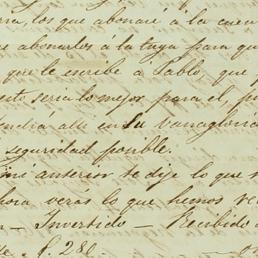 los que abonaré á la cuen
abonarlos á la tuya para qu
que le escribe á Pablo, que
seria lo mejor para el
allí en su vanagloria
seguridad posible.
mi anterior te dije lo que
hora veras lo que hemos re
Invertido — Recibido